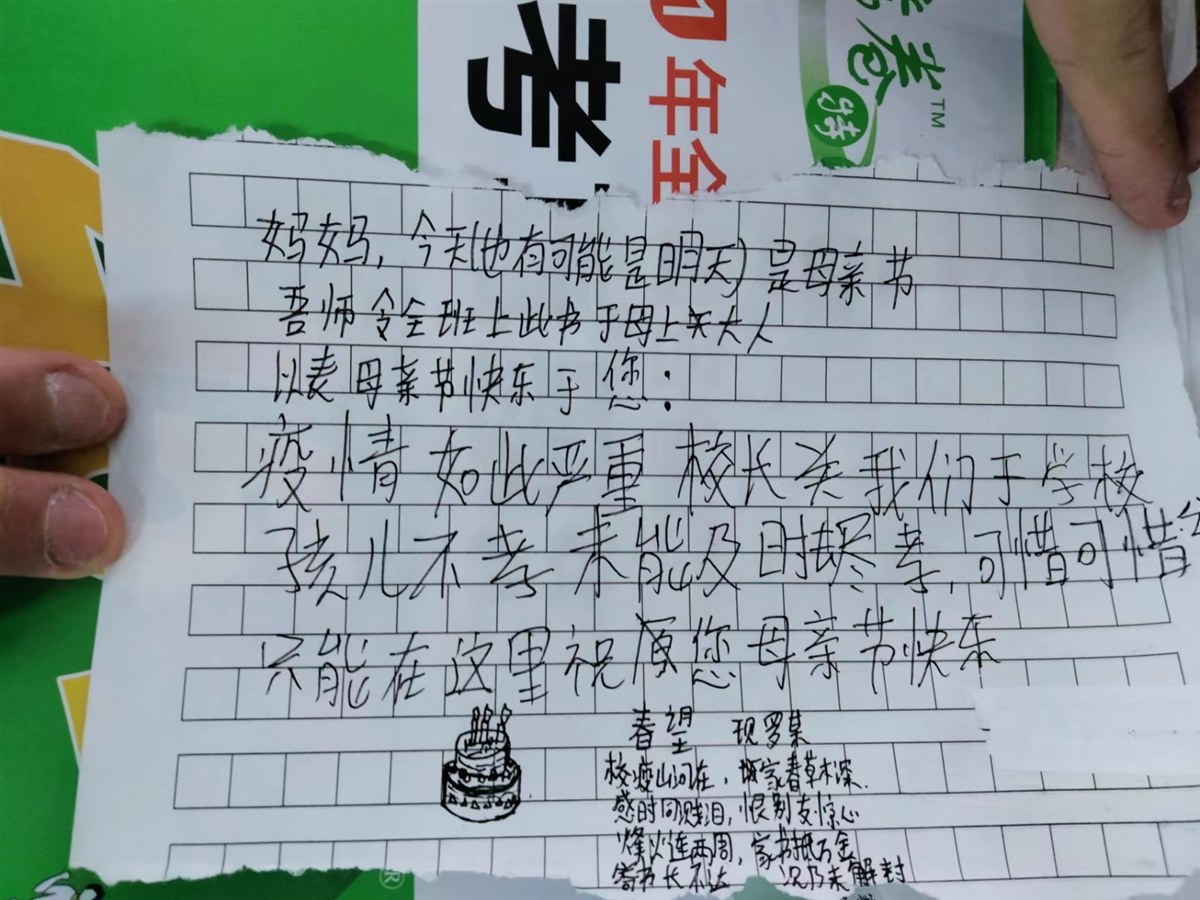 卷
特
TM
年全
考
妈妈,今天(也有可能是明天)是母亲节
吾师令全班上此书于母上矢大人
以表母亲节快乐于您:
疫情如此严重 校长关我们于学校
孩儿不孝 未能及时尽孝,可惜可惜
只能在这里祝愿您母亲节快乐
春望 现罗某
校疫山河在,城家春草木深
感时同贱泪,恨别友惊心
烽火连两周,家书抵万金
寄书长不达 况乃未解封